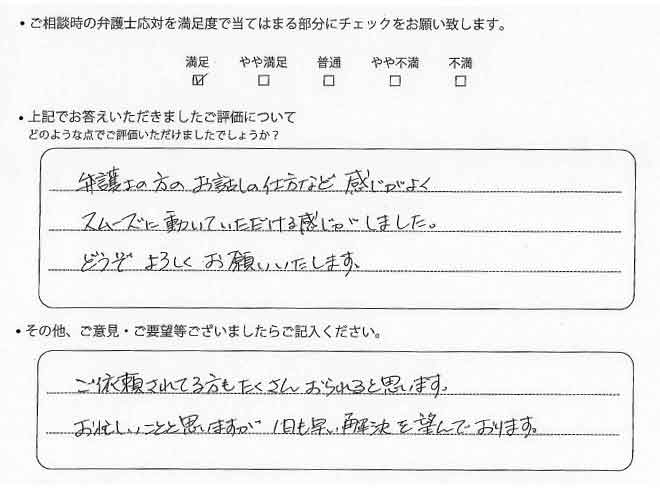 ・ご相談時の弁護士応対を満足度で当てはまる部分にチェックをお願い致します。
満足 やや満足 普通 やや不満 不満
☑ ☐ ☐ ☐ ☐
・上記でお答えいただきましたご評価について
どのような点でご評価いただけましたでしょうか？
弁護士の方の お話しの仕方など 感じがよく
スムーズに動いていただける感じがしました。
どうぞ よろしく お願いいたします。
・その他、ご意見・ご要望等ございましたらご記入ください。
ご依頼されてる方もたくさん おられると思います。
お忙しいことと思いますが 1日も早い解決を望んでおります。